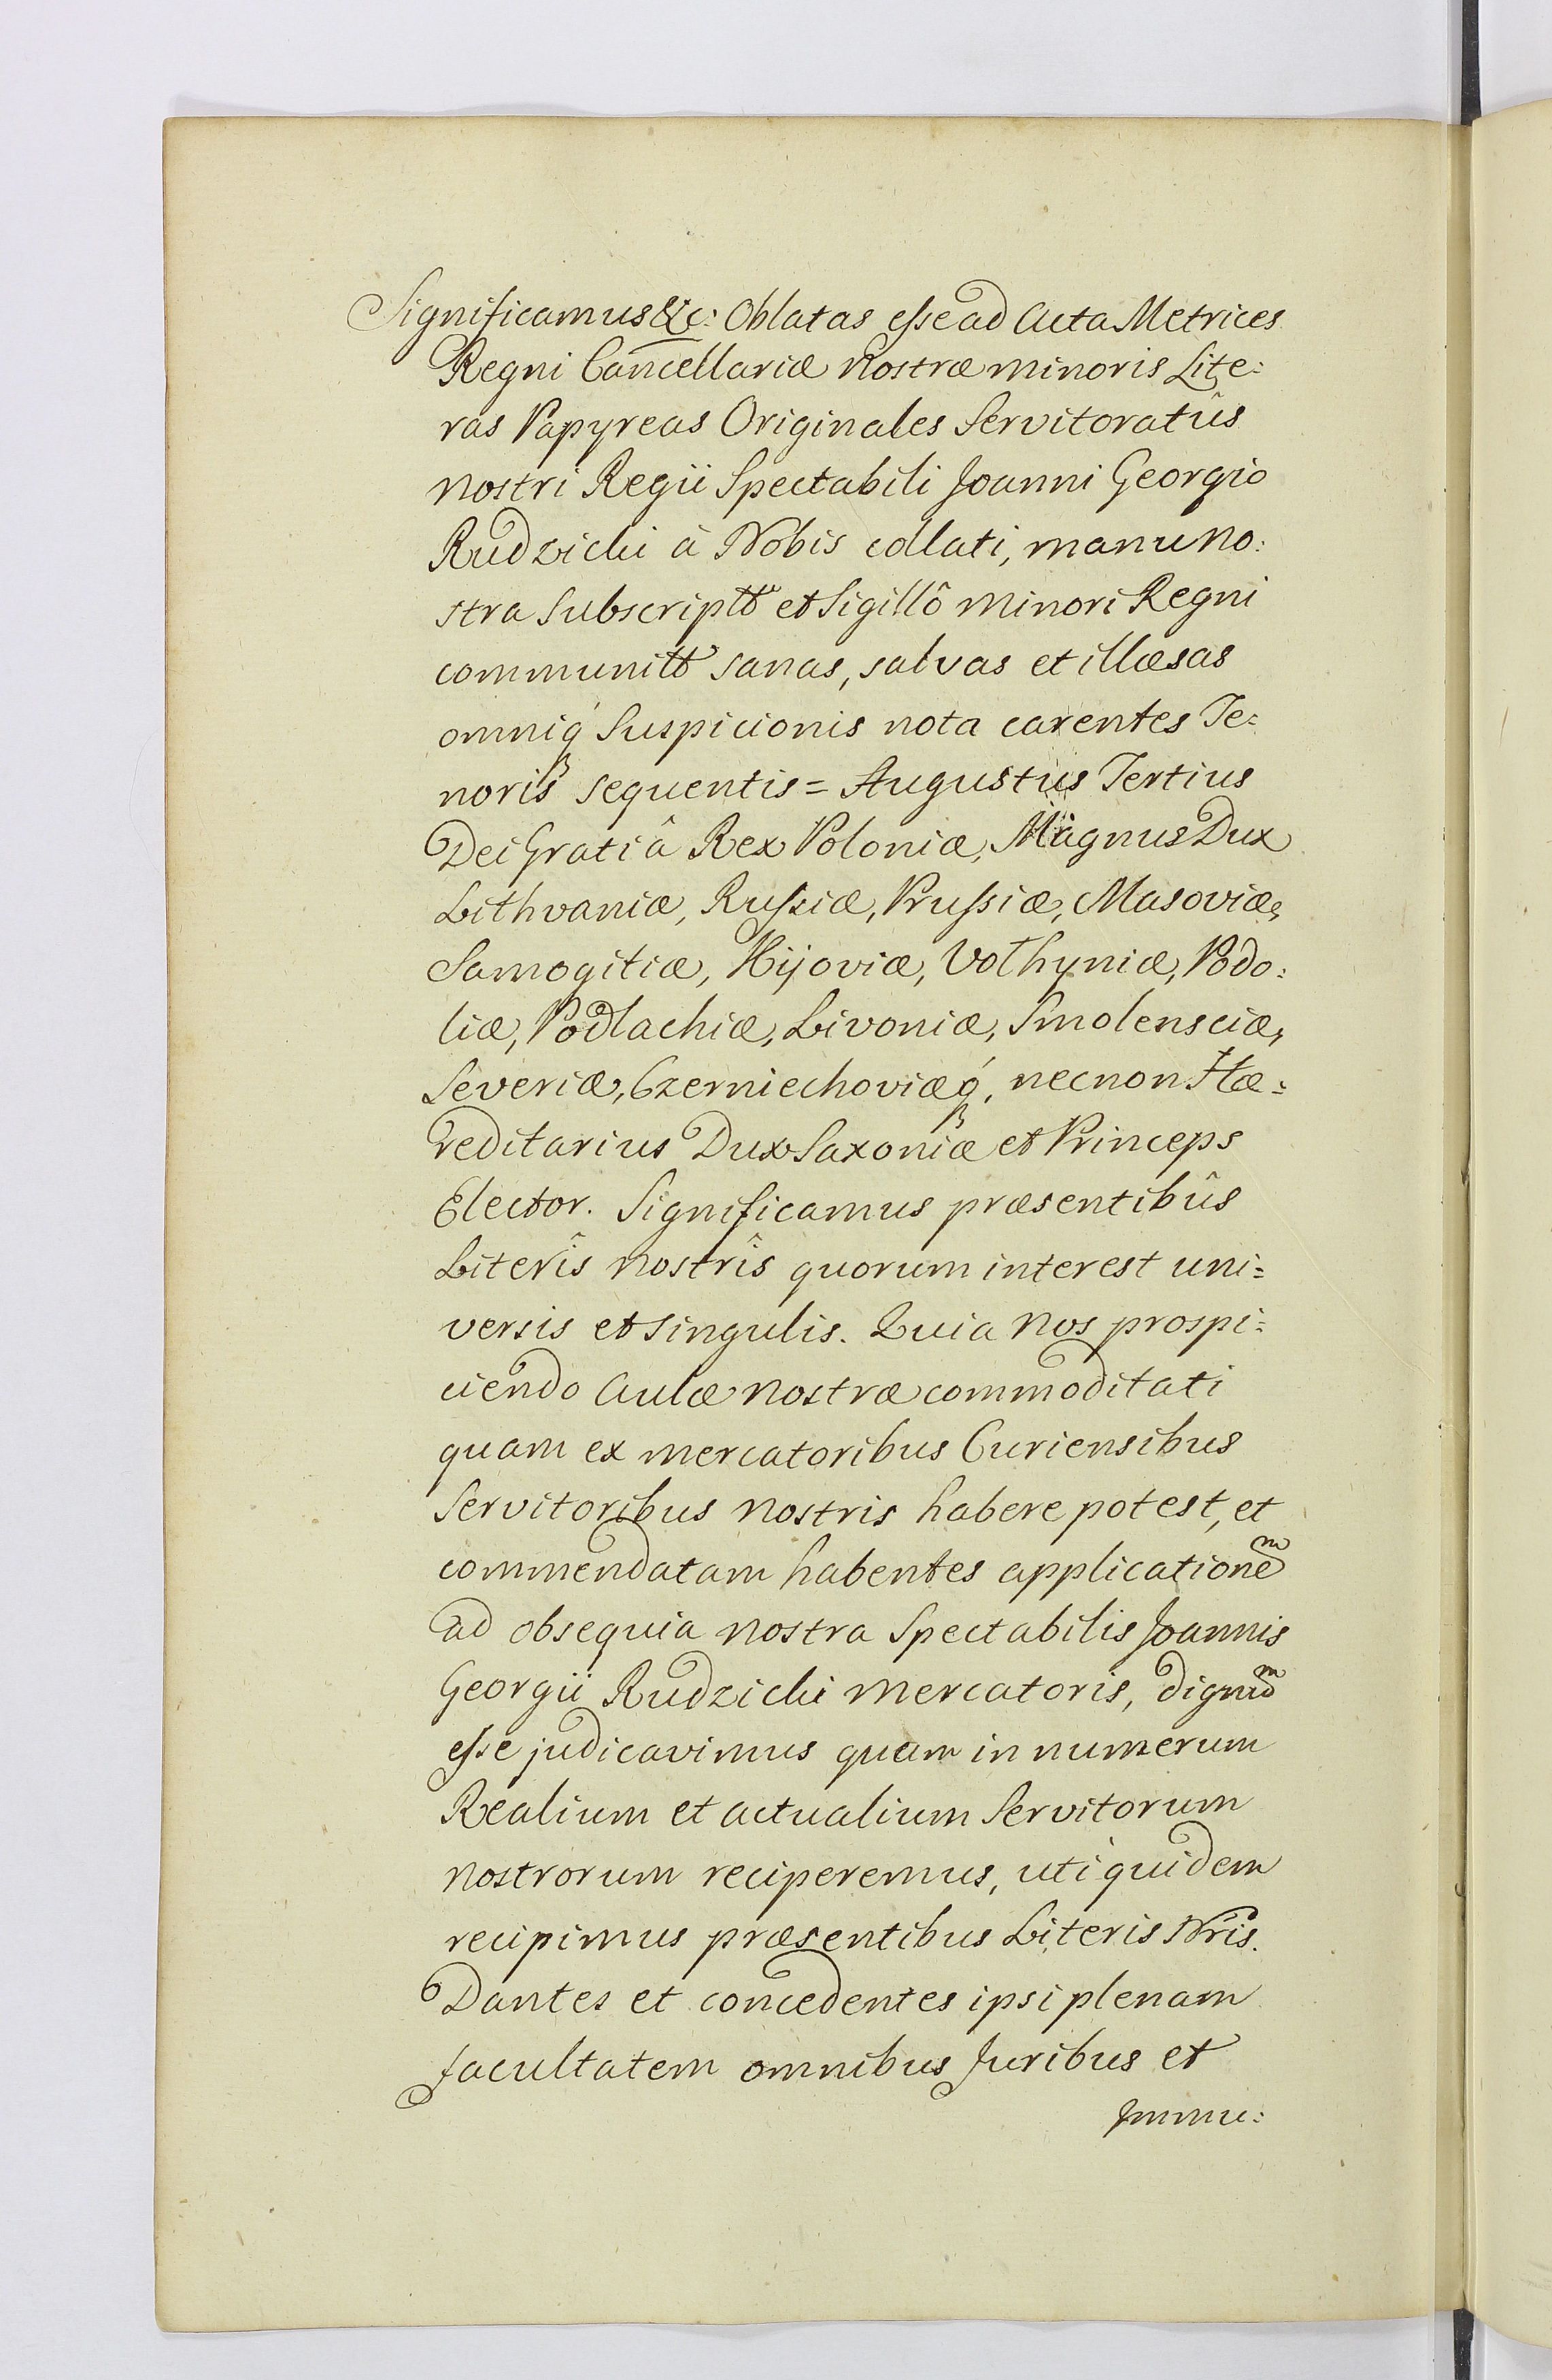 Significamus &c: Oblatas esse ad Acta Metrices
Regni Cancellariæ Nostræ minoris Lite:
ras Papyreas Originales Servitoratûs
nostri Regii Spectabili Joanni Georgio
Rudzicki à Nobis collati, manu No:
stra subscriptt et Sigillô minori Regni
communitt sanas, salvas et illæsas
omniq́ Suspicionis nota carentes Te=
noris sequentis = Augustus Tertius
Dei Gratiâ Rex Poloniæ, Magnus Dux
Lithvaniæ, Russiæ, Prussiæ, Masoviæ,
Samogitiæ, Kijoviæ, Volhyniæ, Podo:
liæ, Podlachiæ, Livoniæ, Smolensciæ,
Severiæ, Czerniechoviæq́, necnon Hæ=
reditarius Dux Saxoniæ et Princeps
Elector. Significamus præsentibûs
Literîs nostrîs quorum interest uni=
versis et singulis. Quia Nos prospi=
ciendo Aulæ nostræ commoditati
quam ex mercatoribus Curiensibus
Servitoribus nostris habere potest, et
commendatam habentes applicationem
ad obsequia nostra Spectabilis Joannis
Georgii Rudzicki Mercatoris, dignum
esse judicavimus quam in numerum
Realium et actualium Servitorum
nostrorum reciperemus, uti quidem
recipimus præsentibus Literis Nris.
Dantes et concedentes ipsi plenam
facultatem omnibus Juribus et
Immu: